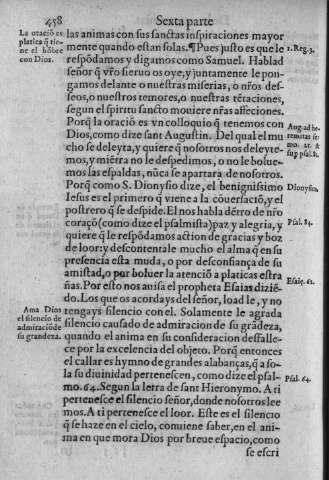 458
Sexta parte
La oració es
platica q̃ tie-
ne el hõbre
con Dios.
las animas con sus sanctas inspiraciones mayor
mente quando estan solas. ¶ Pues justo es que le
respõdamos y digamos como Samuel. Hablad
señor q̃ vr̃o sieruo os oye, y juntamente le pon-
gamos delante o nuestras miserias, o nr̃os des-
seos, o nuestros temores, o nuestras tẽtaciones,
segun el spiritu sancto mouiere nr̃as affeciones.
Porq̃ la oració es vn colloquio q̃ tenemos con
Dios, como dize sant Augustin. Del qual el mu
cho se deleyta, y quiere q̃ nosotros nos deleyte-
mos, y miẽtra no le despedimos, o no le boluе-
mos las espaldas, nũca se apartara de nosotros.
Porq̃ como S. Dionysio dize, el benignissimo
Iesus es el primero q̃ viene a la cõuersació, y el
postrero q̃ se despide. El nos habla dẽtro de nr̃o
coraçõ (como dize el psalmista) paz y alegria, y
quiere q̃ le respõdamos action de gracias y boz
de loor: y descontentale mucho el alma q̃ en su
presencia esta muda, o por desconfiança de su
amistad, o por boluer la atenció a platicas estra
ñas. Por esto nos auisa el propheta Esaias diziẽ-
do. Los que os acordays del señor, load le, y no
tengays silencio con el. Solamente le agrada
silencio causado de admiracion de su grãdeza,
quando el anima en su consideracion desfalle-
ce por la excelencia del objeto. Porq̃ entonces
el callar es hymno de grandes alabanças, q̃ a so-
la su diuinidad pertenescen, como dize el psal-
mo. 64. Segun la letra de sant Hieronymo. A ti
pertenesce el silencio señor, donde nosotros lee
mos. A ti pertenesce el loor. Este es el silencio
q̃ se haze en el cielo, conuiene saber, en el ani-
ma en que mora Dios por breue espacio, como
se escri
1. Reg. 3.
Aug. ad he-
remitas ser
mo. 22. &
sup psal. 85.
Dionysio.
Psal. 84.
Esaię. 62.
Ama Dios
el silencio de
admiració de
su grandeza.
Psal. 64.